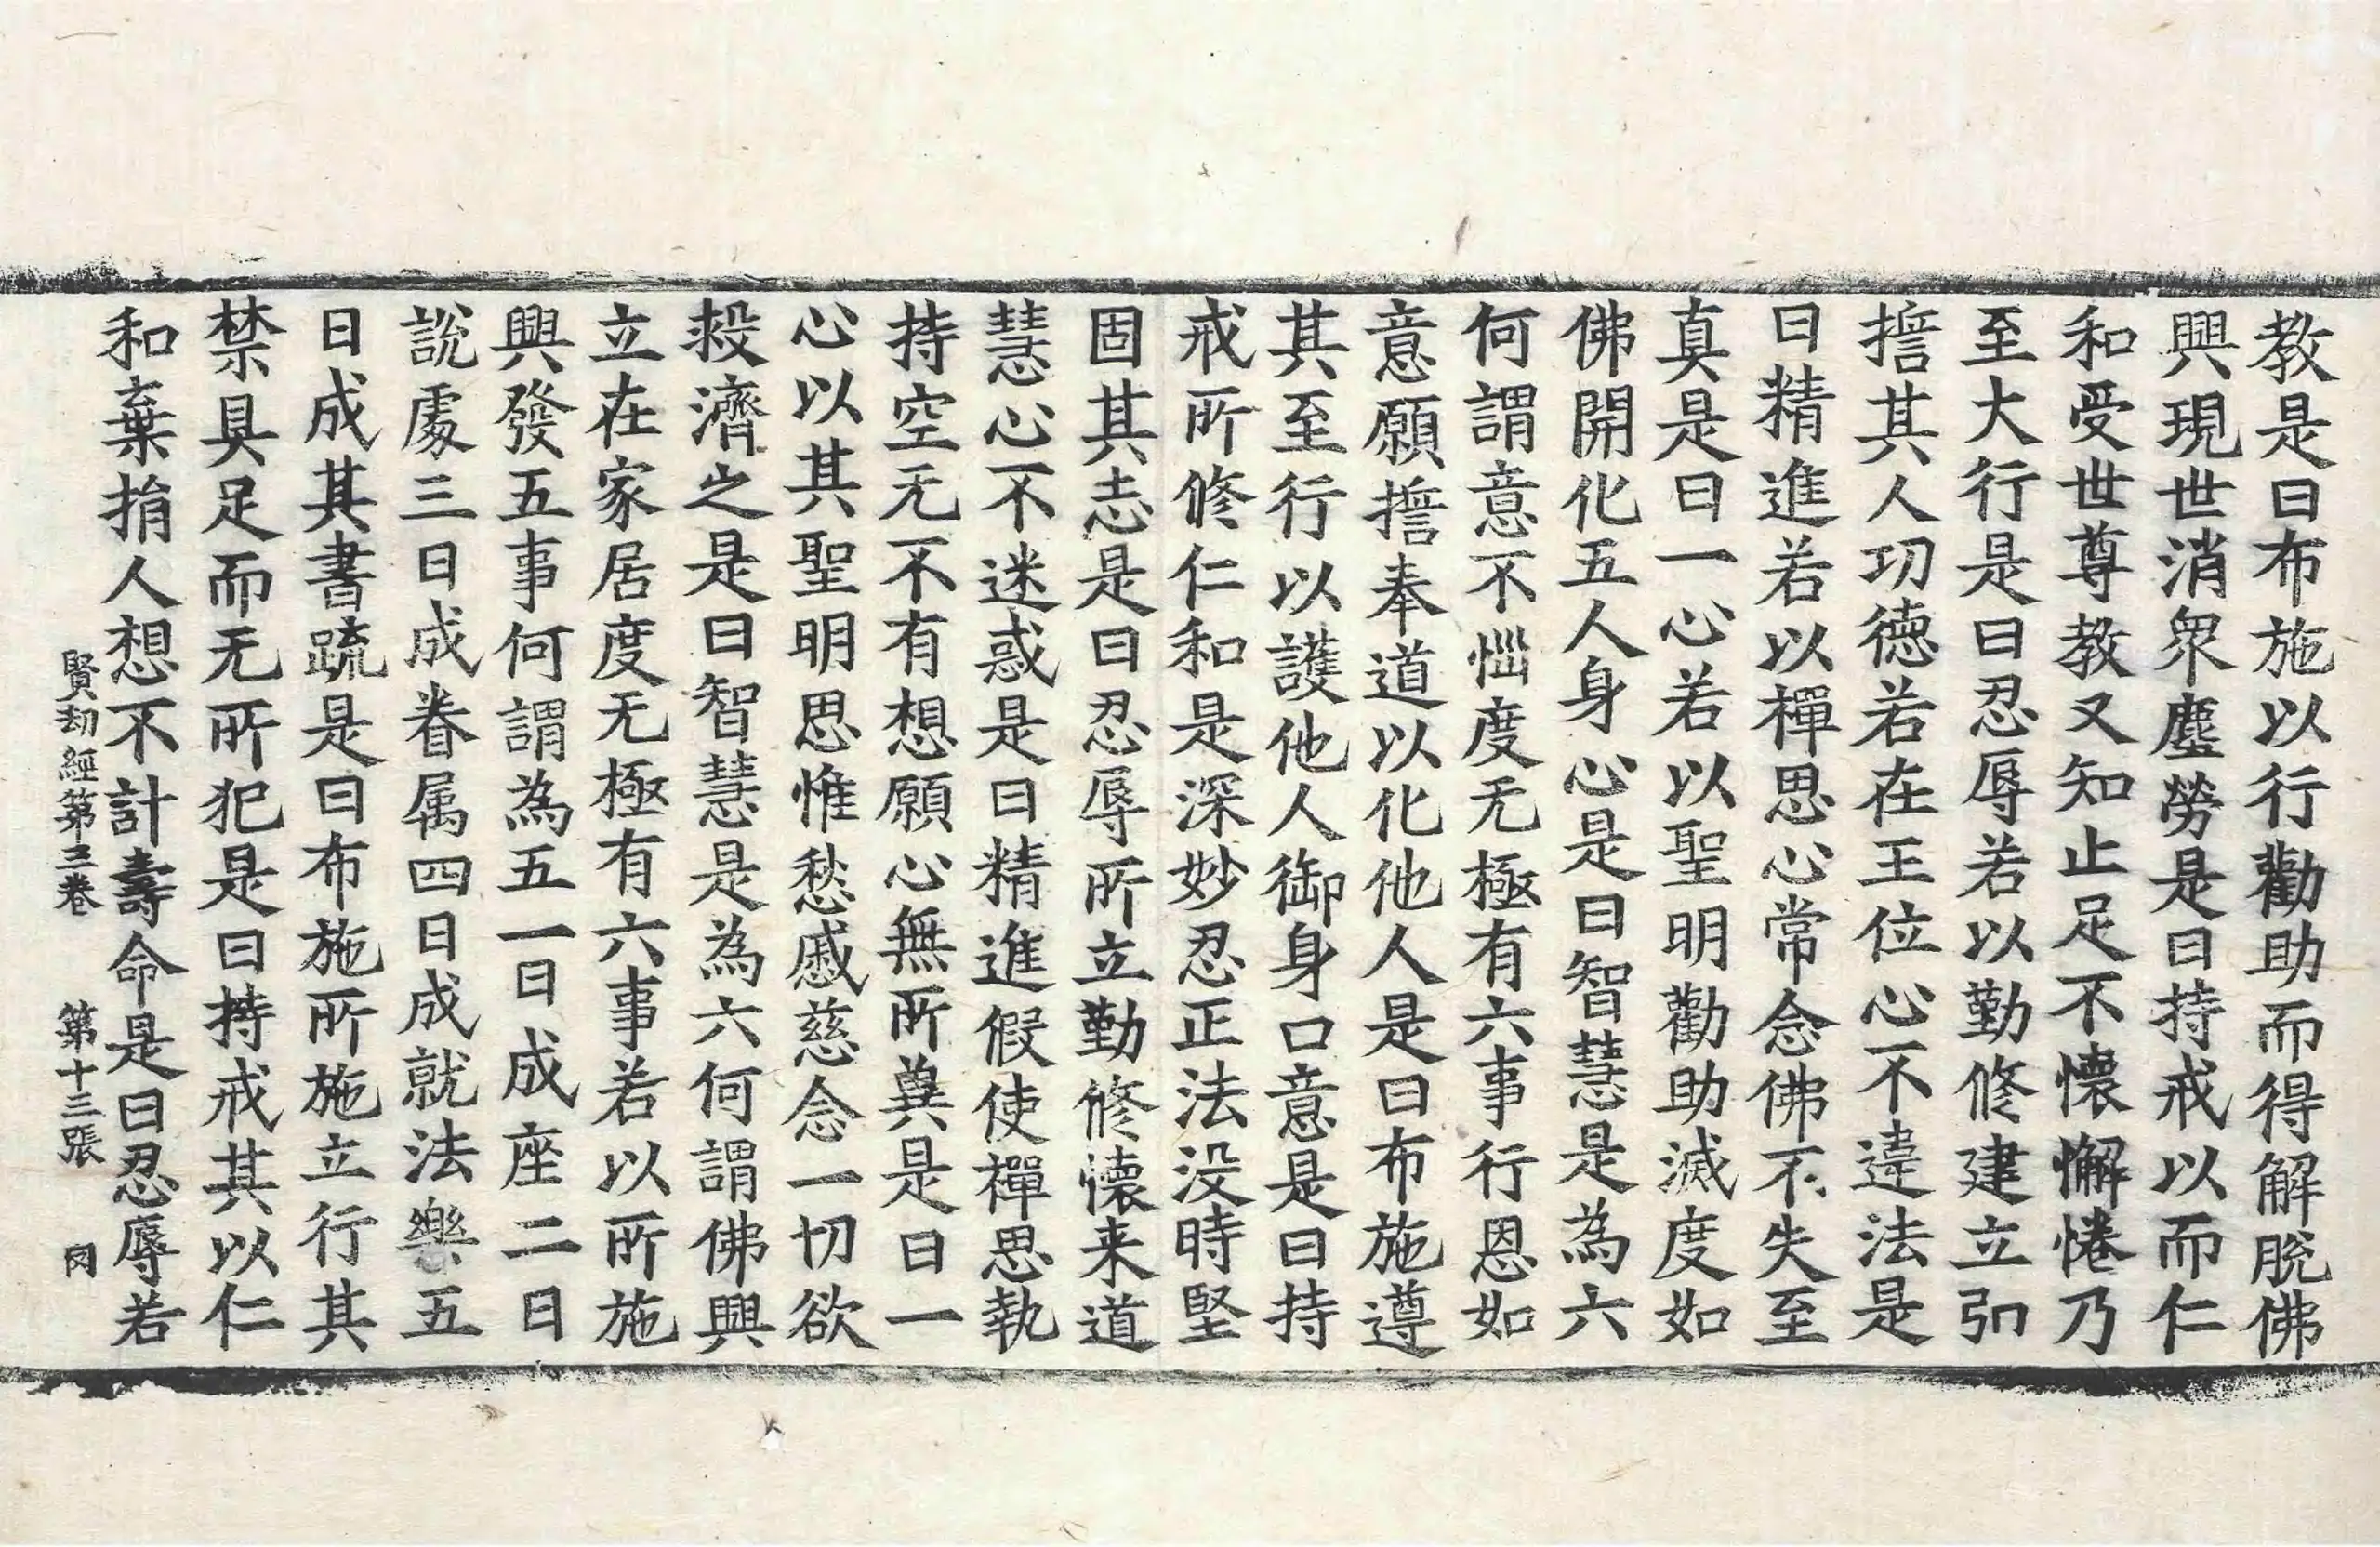 教是曰布施以行勸助而得解脫佛
興現世消衆塵勞是曰持戒以而仁
和受世尊教又知止足不懷懈惓乃
至大行是曰忍辱若以勤修建立弘
擔其人功德若在王位心不違法是
曰精進若以禪思心常念佛不失至
真是曰一心若以聖明勸助滅度如
佛開化五人身心是曰智慧是為六
何謂意不惱度无極有六事行恩如
意願擔奉道以化他人是曰布施遵
其至行以護他人御身口意是曰持
戒所修仁和是深妙忍正法没時堅
固其志是曰忍辱所立勤修懷来道
慧心不迷惑是曰精進假使禪思執
持空无不有想願心無所兾是曰一
心以其聖明思惟愁慼慈念一切欲
救濟之是曰智慧是為六何謂佛興
立在家居度无極有六事若以所施
興發五事何謂為五一曰成座二曰
說處三曰成眷属四曰成就法樂五
曰成其書疏是曰布施所施立行其
禁具足而无所犯是曰持戒其以仁
和棄捐人想不計壽命是曰忍辱若
賢劫經第三卷 第十三張 冈